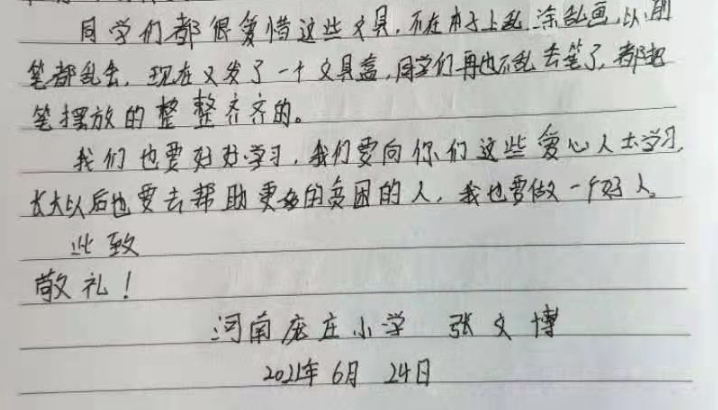 同学们都很爱惜这些文具,不在本子上乱涂乱画,以前
笔都乱丢,现在又发了一个文具盒,同学们再也不乱丢笔了,都把
笔摆放的整整齐齐的。
我们也要好好学习,我们要向你们这些爱心人士学习,
长大以后也要去帮助更多的贫困的人,我也要做一个好人。
此致
敬礼!
河南庞庄小学 张文博
2021年6月24日